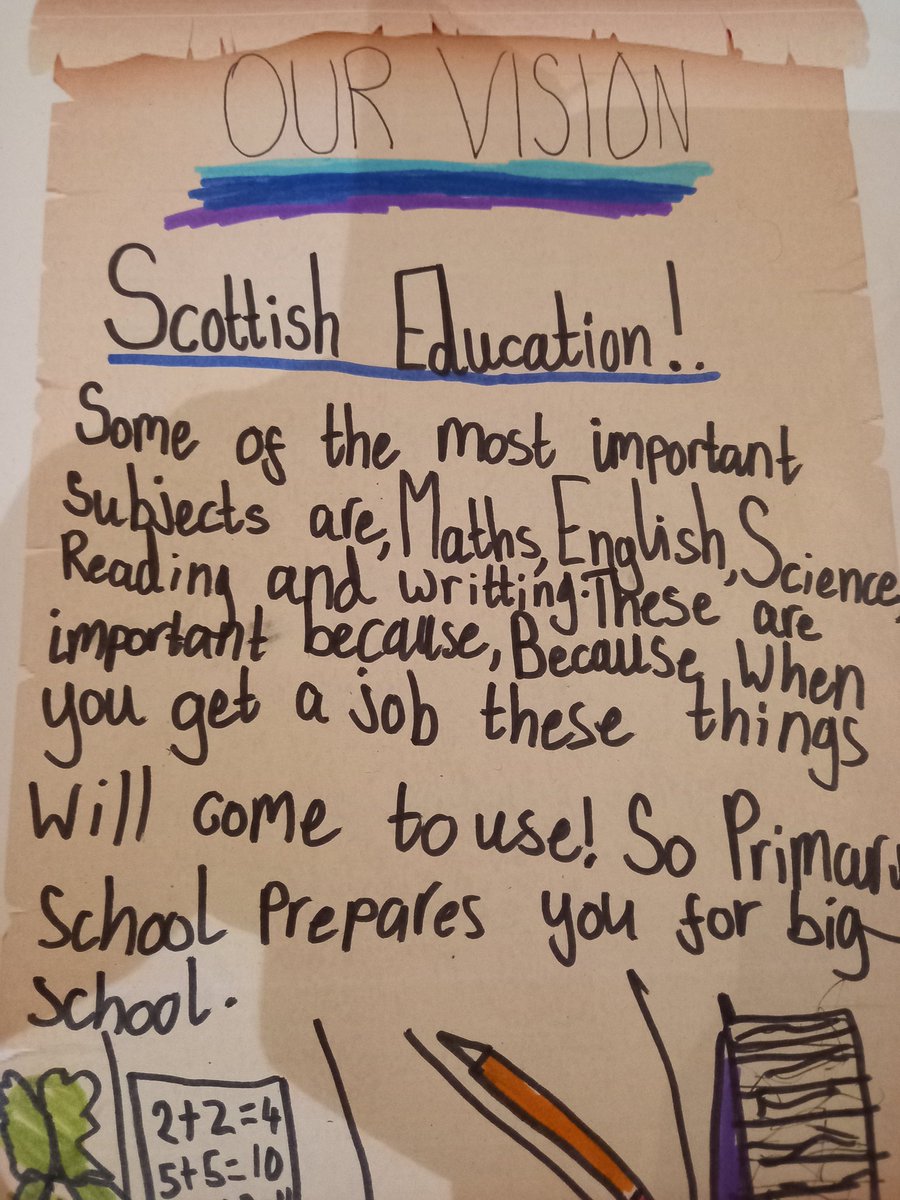 OUR VISION
Scottish Education!.
Some of the most important
subjects are, Maths, English, Science,
Reading and writting. These are
important because, Because, When
you get a job these things
Will come to use! So Primary
School Prepares you for big
school.
2+2=4
5+5=10